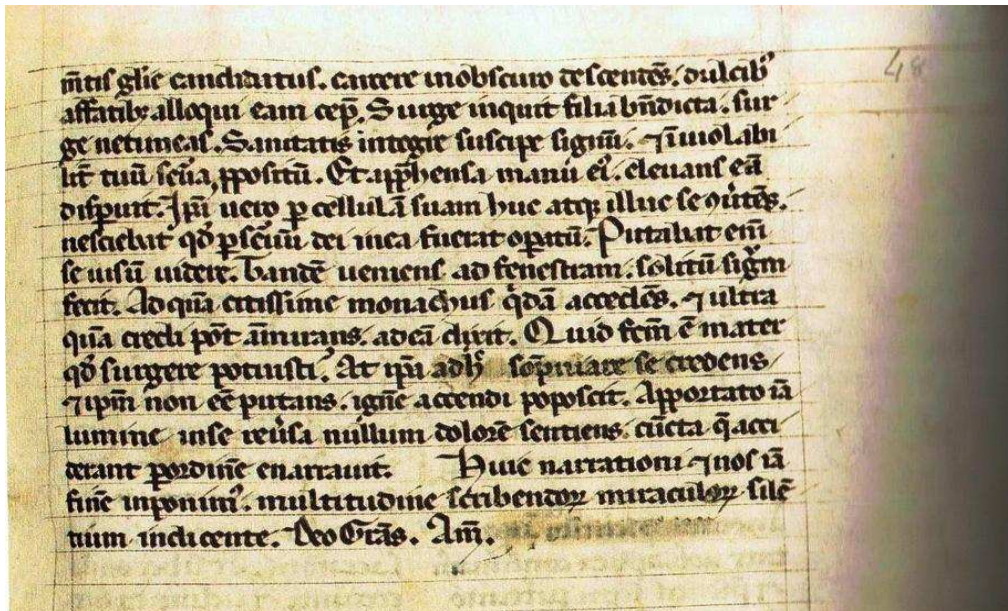 48
m̄tis gl'ie candidatus. carcere in obscuro descendēs. dulcibꝰ
affatibꝫ alloqui eam cep̄. Surge inquit filia bn̄dicta. sur
ge ne timeas. Sanitatis integre suscipe signū. ⁊ īuiolabi
lit̄ tuū ser̄ua ꝓpositū. Et app̄hensa manu eiꝰ. eleuans eā
disparuit. Ip̄a uero ꝑ cellulā suam huc atqꝫ illuc se ꝯūtēs.
nesciebat qd̄ ꝑ seruū dei in ea fuerat oꝑatū. Putabat enī
se uisū uidere. Tandē ueniens ad fenestram. solitū signū
fecit. Ad quā citissime monachus q̇dā accedēs. ⁊ ultra
quā credi pōt āmirans. ad eā dixit. Quid fecisti ē mater
qd̄ surgere potuisti. At ip̄a adh̄ sōpniare se credens
⁊ ip̄m non eē putans. ignē accendi poposcit. Apportato iā
lumine in se reūsa nullum dolorē sentiens. cūcta q̄ acci
derant ꝑ ordinē enarrauit. Huic narrationi ⁊ nos iā
finē inponimꝰ. multitudine scribendoꝝ miraculoꝝ silē
tium indicente. Deo Grās. Am̄.